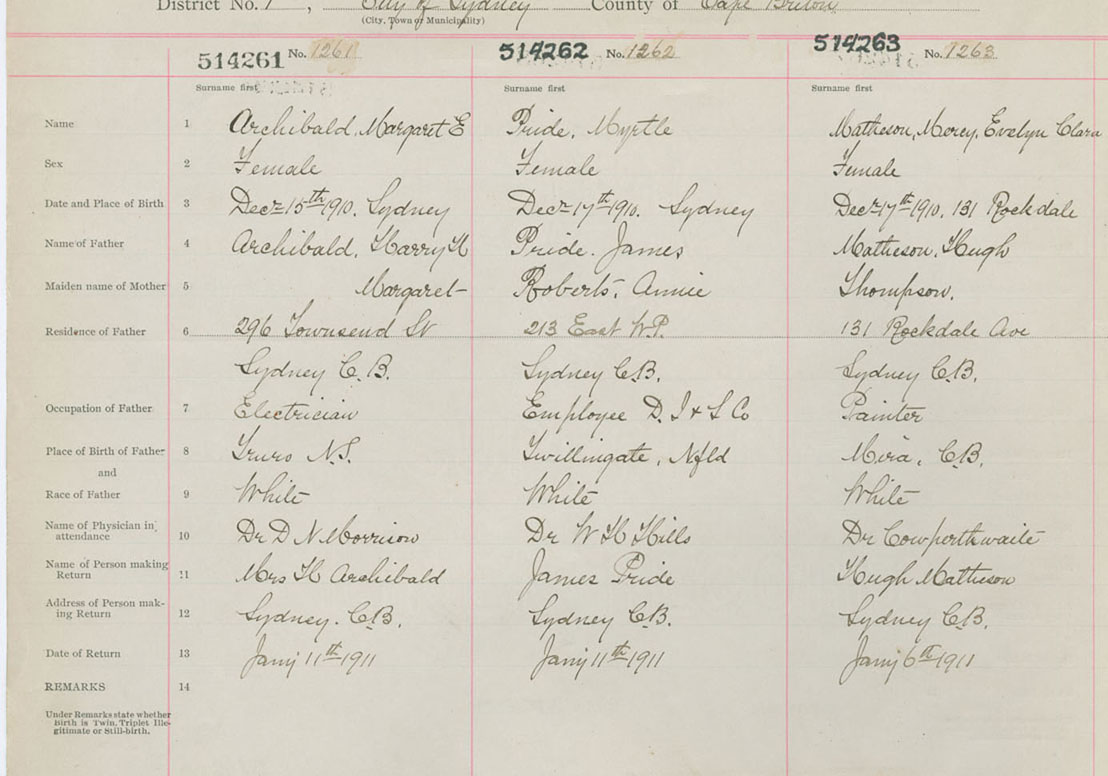 District No. 1, City of Sydney County of Cape Breton
(City, Town or Municipality)
514261 No. 1261 514262 No. 1262 514263 No. 1263
Surname first Surname first Surname first
Name 1 Archibald, Margaret E Pride, Myrtle Matheson, Morey, Evelyn Clara
Sex 2 Female Female Female
Date and Place of Birth 3 Decr 15th 1910, Sydney Decr 17th 1910, Sydney Decr 17th 1910, 131 Rockdale
Name of Father 4 Archibald, Harry H Pride. James Matheson, Hugh
Maiden name of Mother 5 Margaret Roberts, Annie Thompson.
Residence of Father 6 296 Townsend St 213 East W.P. 131 Rockdale Ave
Sydney C.B. Sydney C.B. Sydney C.B.
Occupation of Father 7 Electrician Employee D. I & S Co Painter
Place of Birth of Father 8 Truro N.S. Twillingate, Nfld Mira, C.B.
and
Race of Father 9 White White White
Name of Physician in attendance 10 Dr D N Morrison Dr W H Hills Dr Cowperthwaite
Name of Person making Return 11 Mrs H Archibald James Pride Hugh Matheson
Address of Person mak-ing Return 12 Sydney. C.B. Sydney C.B. Sydney C.B.
Date of Return 13 Jany 11th 1911 Jany 11th 1911 Jany 6th 1911
REMARKS 14
Under Remarks state whether
Birth is Twin, Triplet Ille-
gitimate or Still-birth.